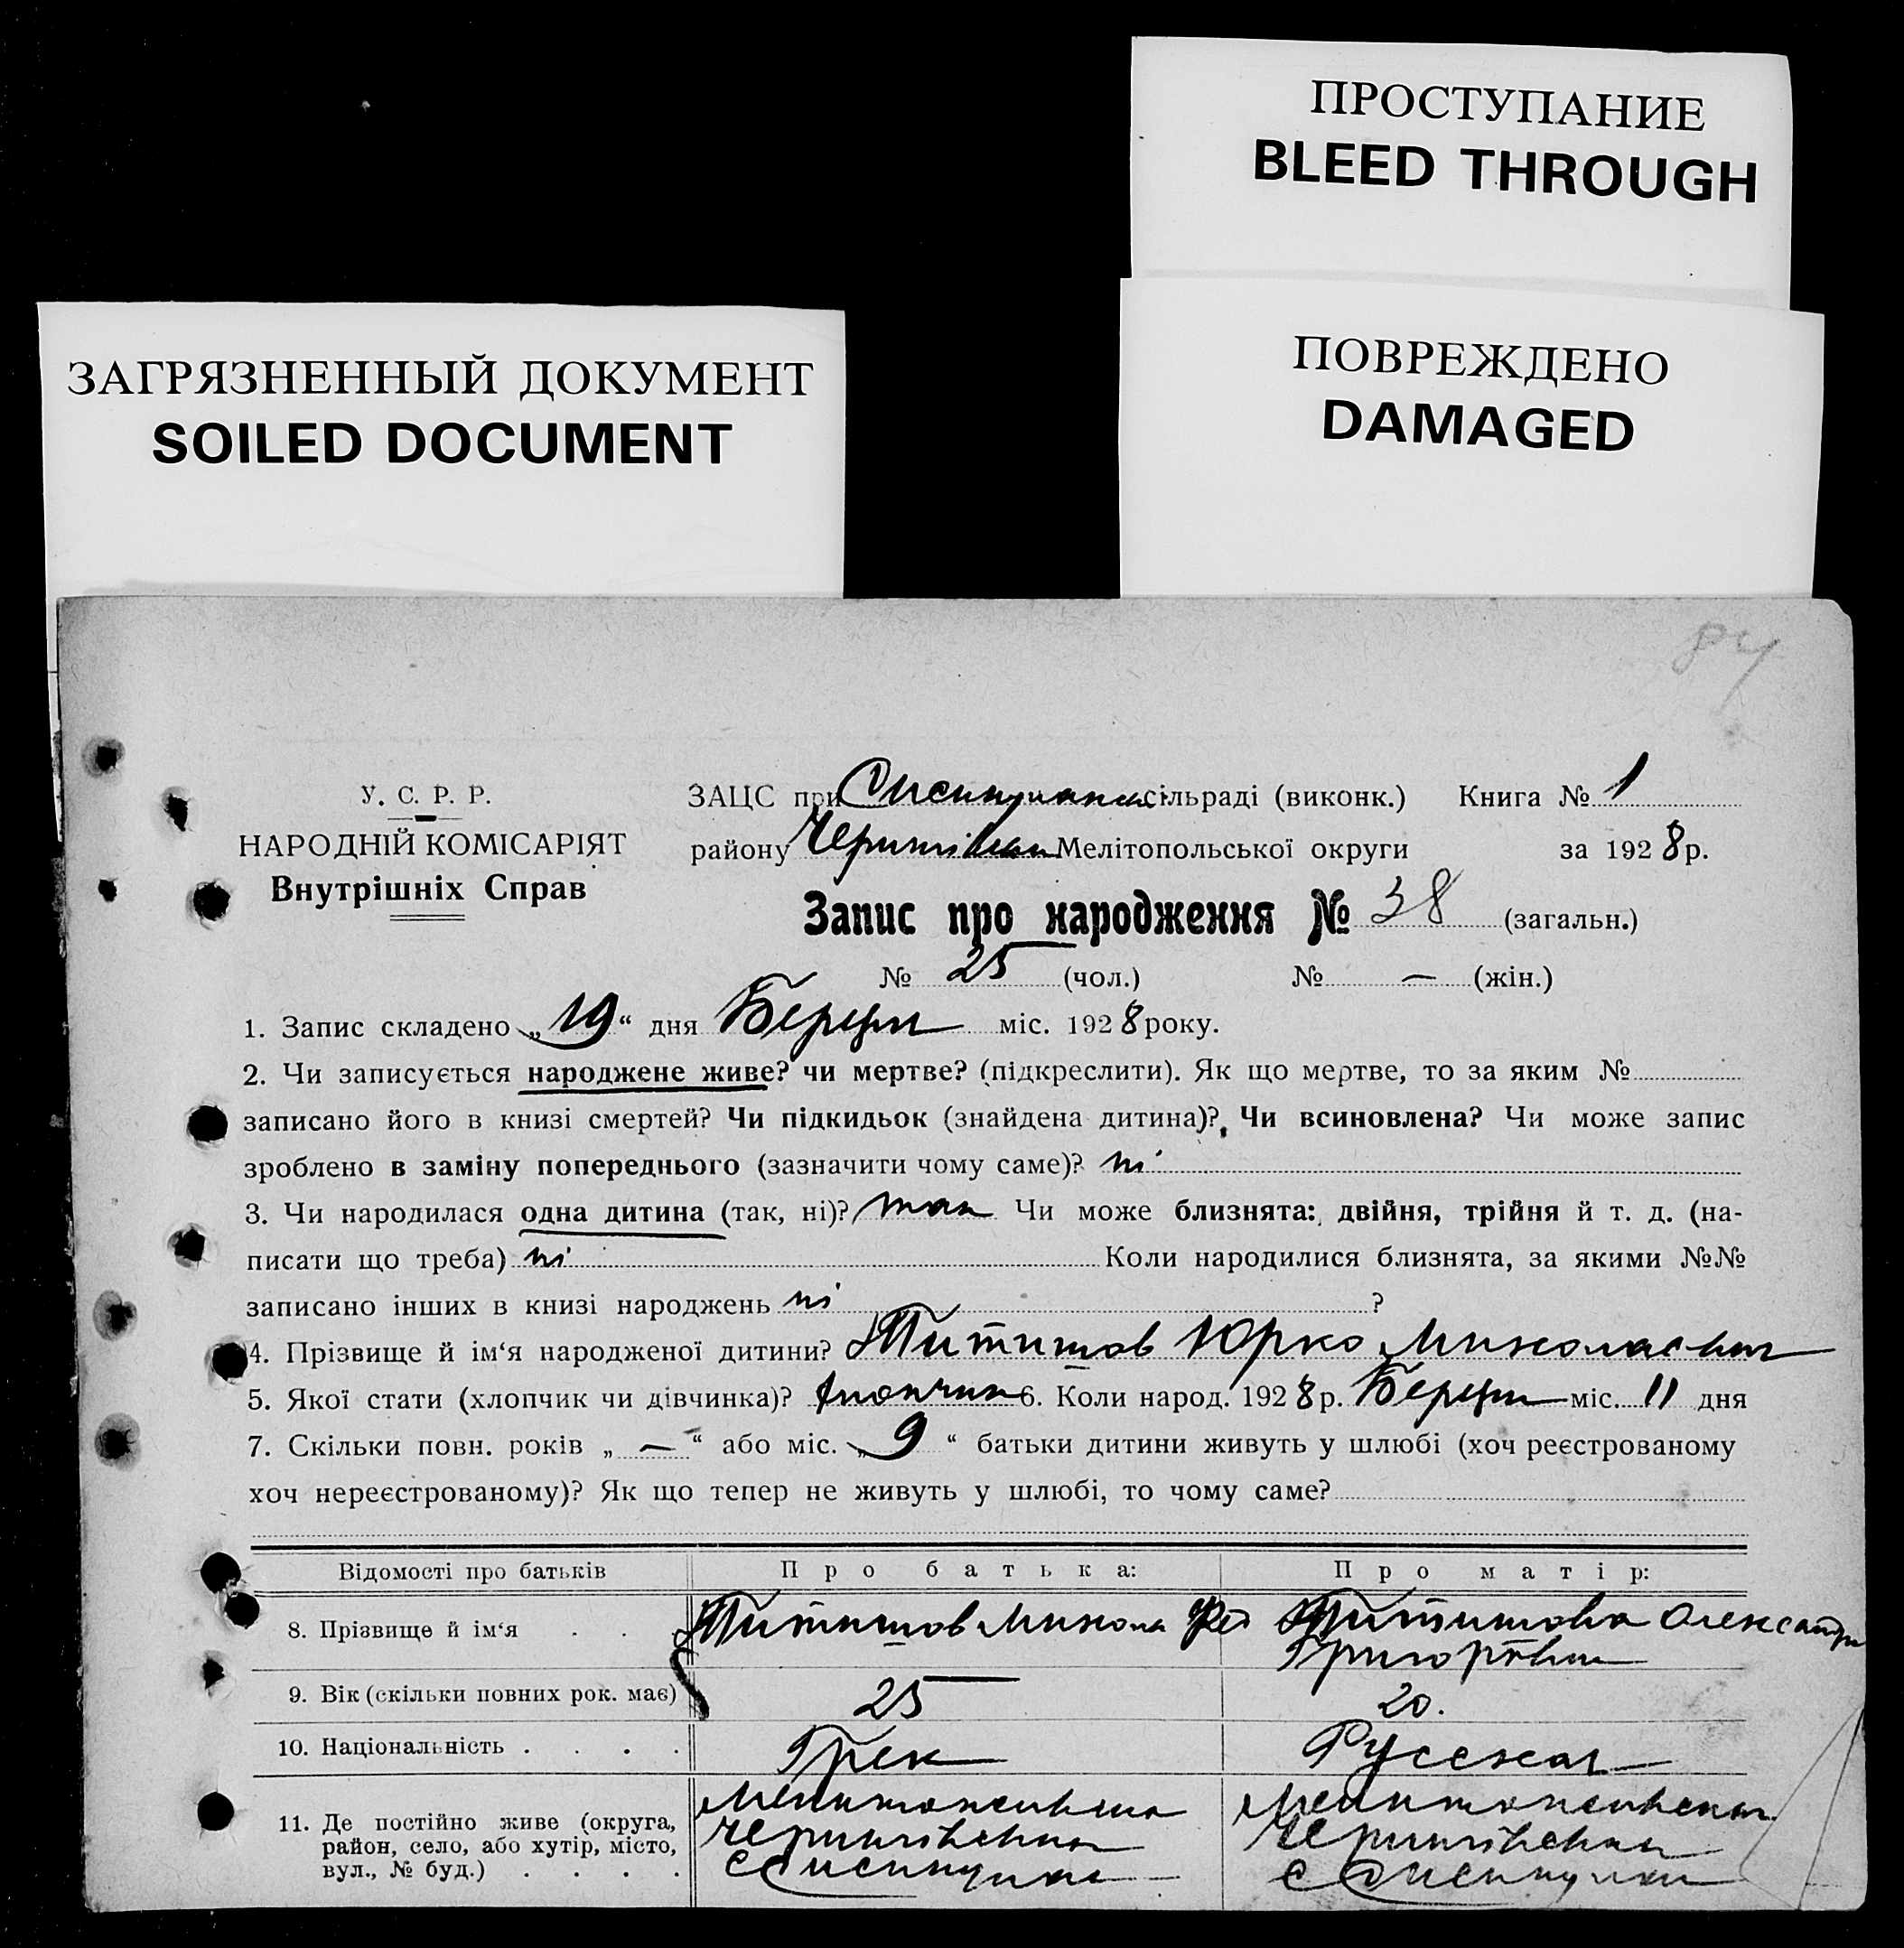 ПРОСТУПАНИЕ
BLEED THROUGH
ЗАГРЯЗНЕННЫЙ ДОКУМЕНТ
SOILED DOCUMENT
ПОВРЕЖДЕНО
DAMAGED
84
У. С. Р. Р.
НАРОДНІЙ КОМІСАРІЯТ
Внутрішніх Справ
ЗАЦС при сільраді (виконк.) Книга № 1
району Мелітопольської округи за 1928 р.
Запис про народження № 38 (загальн.)
№ 25 (чол.) № — (жін.)
1. Запис складено „19“ дня Березня міс. 1928 року.
2. Чи записується народжене живе? чи мертве? (підкреслити). Як що мертве, то за яким №
записано його в книзі смертей? Чи підкидьок (знайдена дитина)? Чи всиновлена? Чи може запис
зроблено в заміну попереднього (зазначити чому саме)? ні
3. Чи народилася одна дитина (так, ні)? так Чи може близнята: двійня, трійня й т. д. (на-
писати що треба) ні Коли народилися близнята, за якими №№
записано інших в книзі народжень ні ?
4. Прізвище й ім‘я народженої дитини? Юрко Миколаевич
5. Якої стати (хлопчик чи дівчинка)? хлопчик 6. Коли народ. 1928 р. Березня міс. 11 дня
7. Скільки повн. років „ — “ або міс. „ 9 “ батьки дитини живуть у шлюбі (хоч реєстрованому
хоч нереєстрованому)? Як що тепер не живуть у шлюбі, то чому саме?
Відомості про батьків Про батька: Про матір:
8. Прізвище й ім‘я Микола Фед Олександра
Григорівна
9. Вік (скільки повних рок. має) 25 20.
10. Національність Грек Русская
11. Де постійно живе (округа,
район, село, або хутір, місто,
вул., № буд.)